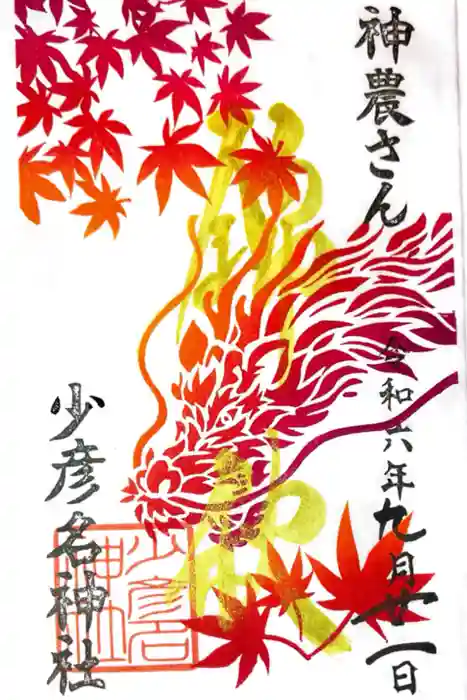 神農さん
令和六年九月廿一日
少彦名神社
少彦名
神社